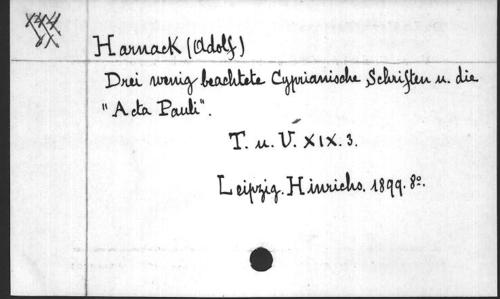 Harnack (Adolf)
Drei wenig beachtete Cyprianische Schriften u. die
"Acta Pauli".
T. u. V. XIX. 3.
Leipzig. Hinrichs. 1899. 8º.